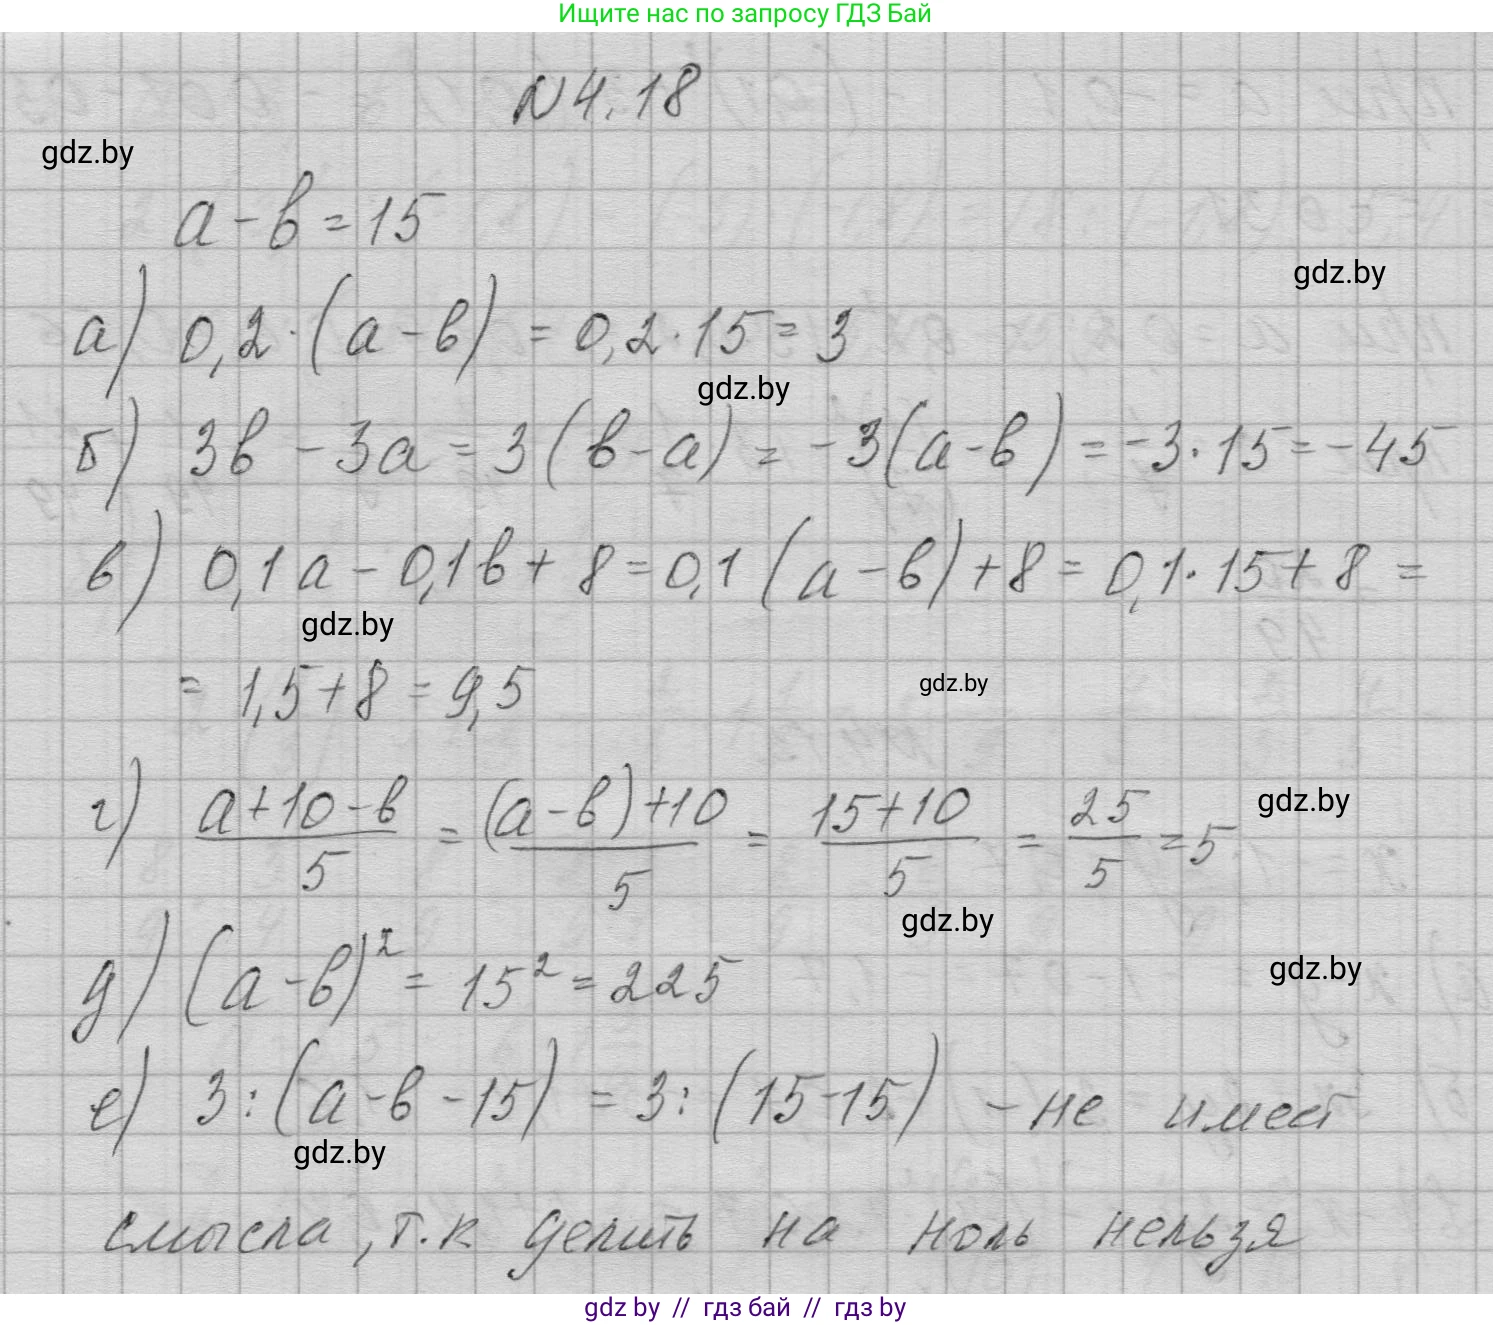 Ищите нас по запросу ГДЗ Бай
N 4.18
gdz.by
a - b = 15
gdz.by
а) 0,2 · (a - b) = 0,2 · 15 = 3
gdz.by
б) 3b - 3a = 3(b - a) = -3(a - b) = -3 · 15 = -45
в) 0,1a - 0,1b + 8 = 0,1(a - b) + 8 = 0,1 · 15 + 8 =
gdz.by
= 1,5 + 8 = 9,5
gdz.by
г) (a + 10 - b)/5 = ((a - b) + 10)/5 = (15 + 10)/5 = 25/5 = 5
gdz.by
gdz.by
д) (a - b)² = 15² = 225
gdz.by
е) 3 : (a - b - 15) = 3 : (15 - 15) - не имеет
gdz.by
смысла, т.к делить на ноль нельзя
gdz by // гдз бай // гдз by